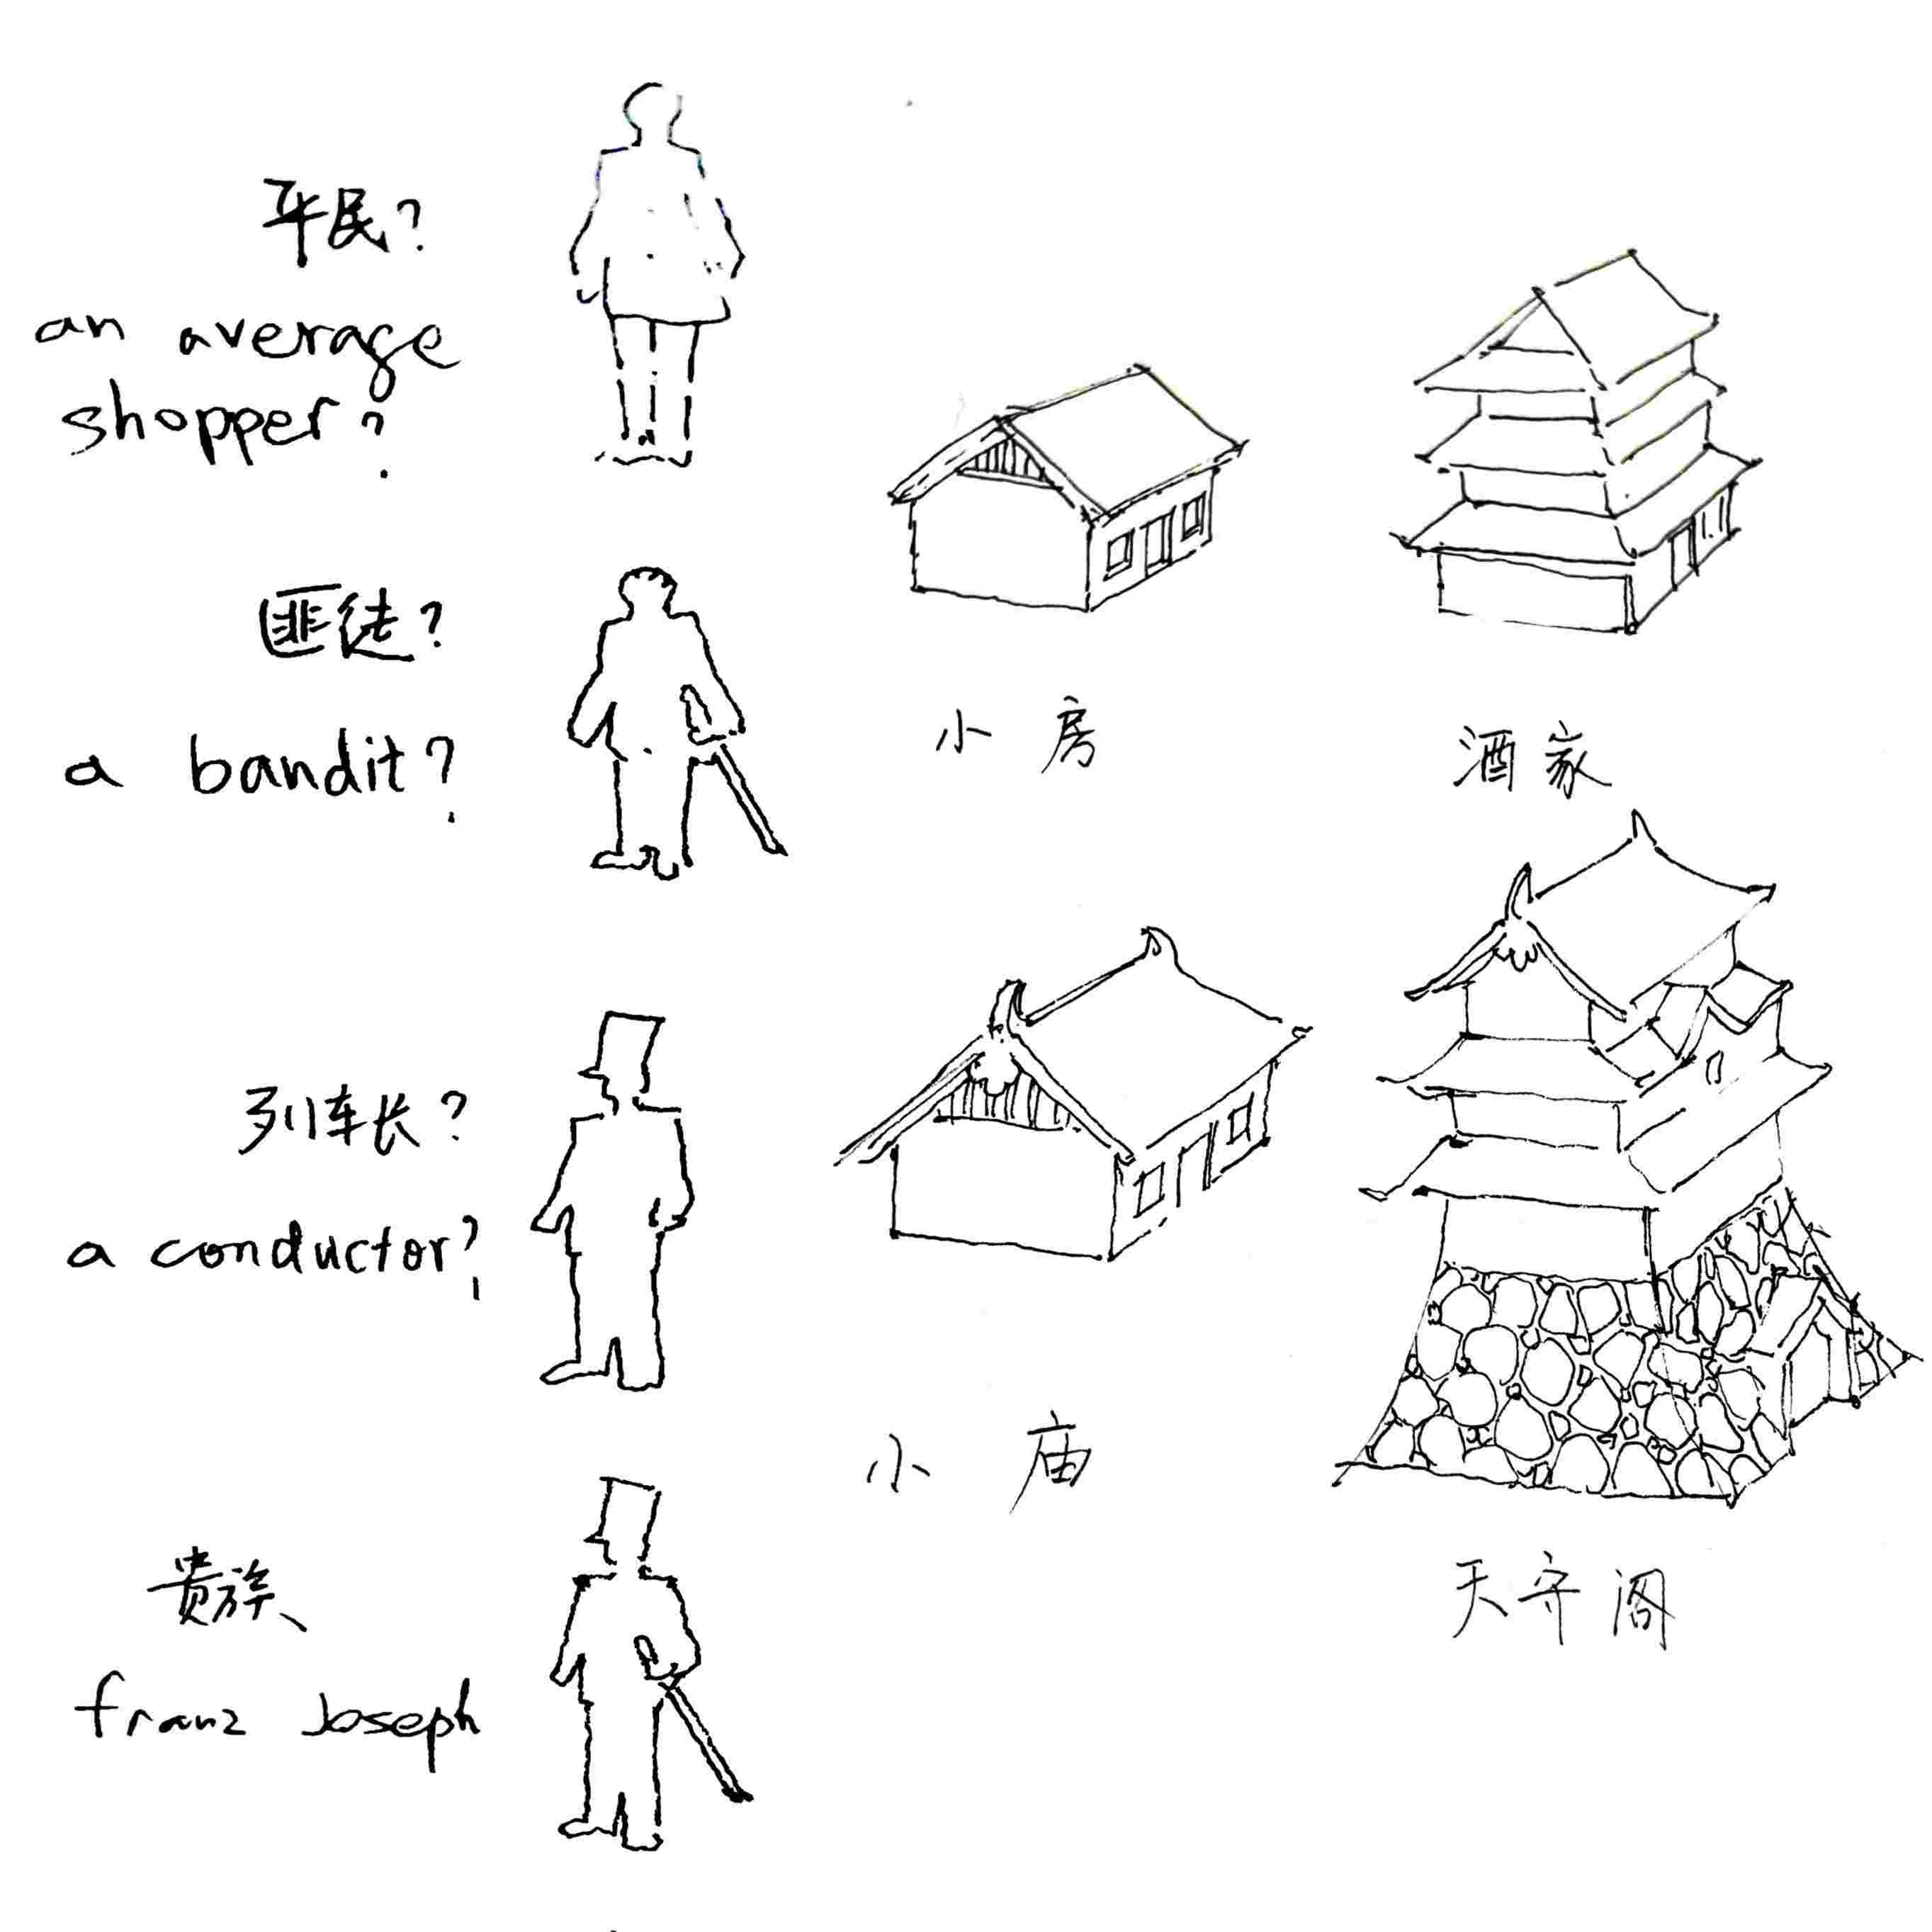 平民?
an average
shopper?
匪徒?
a bandit?
小房
酒家
列车长?
a conductor?
小庙
天守阁
贵族、
franz Joseph